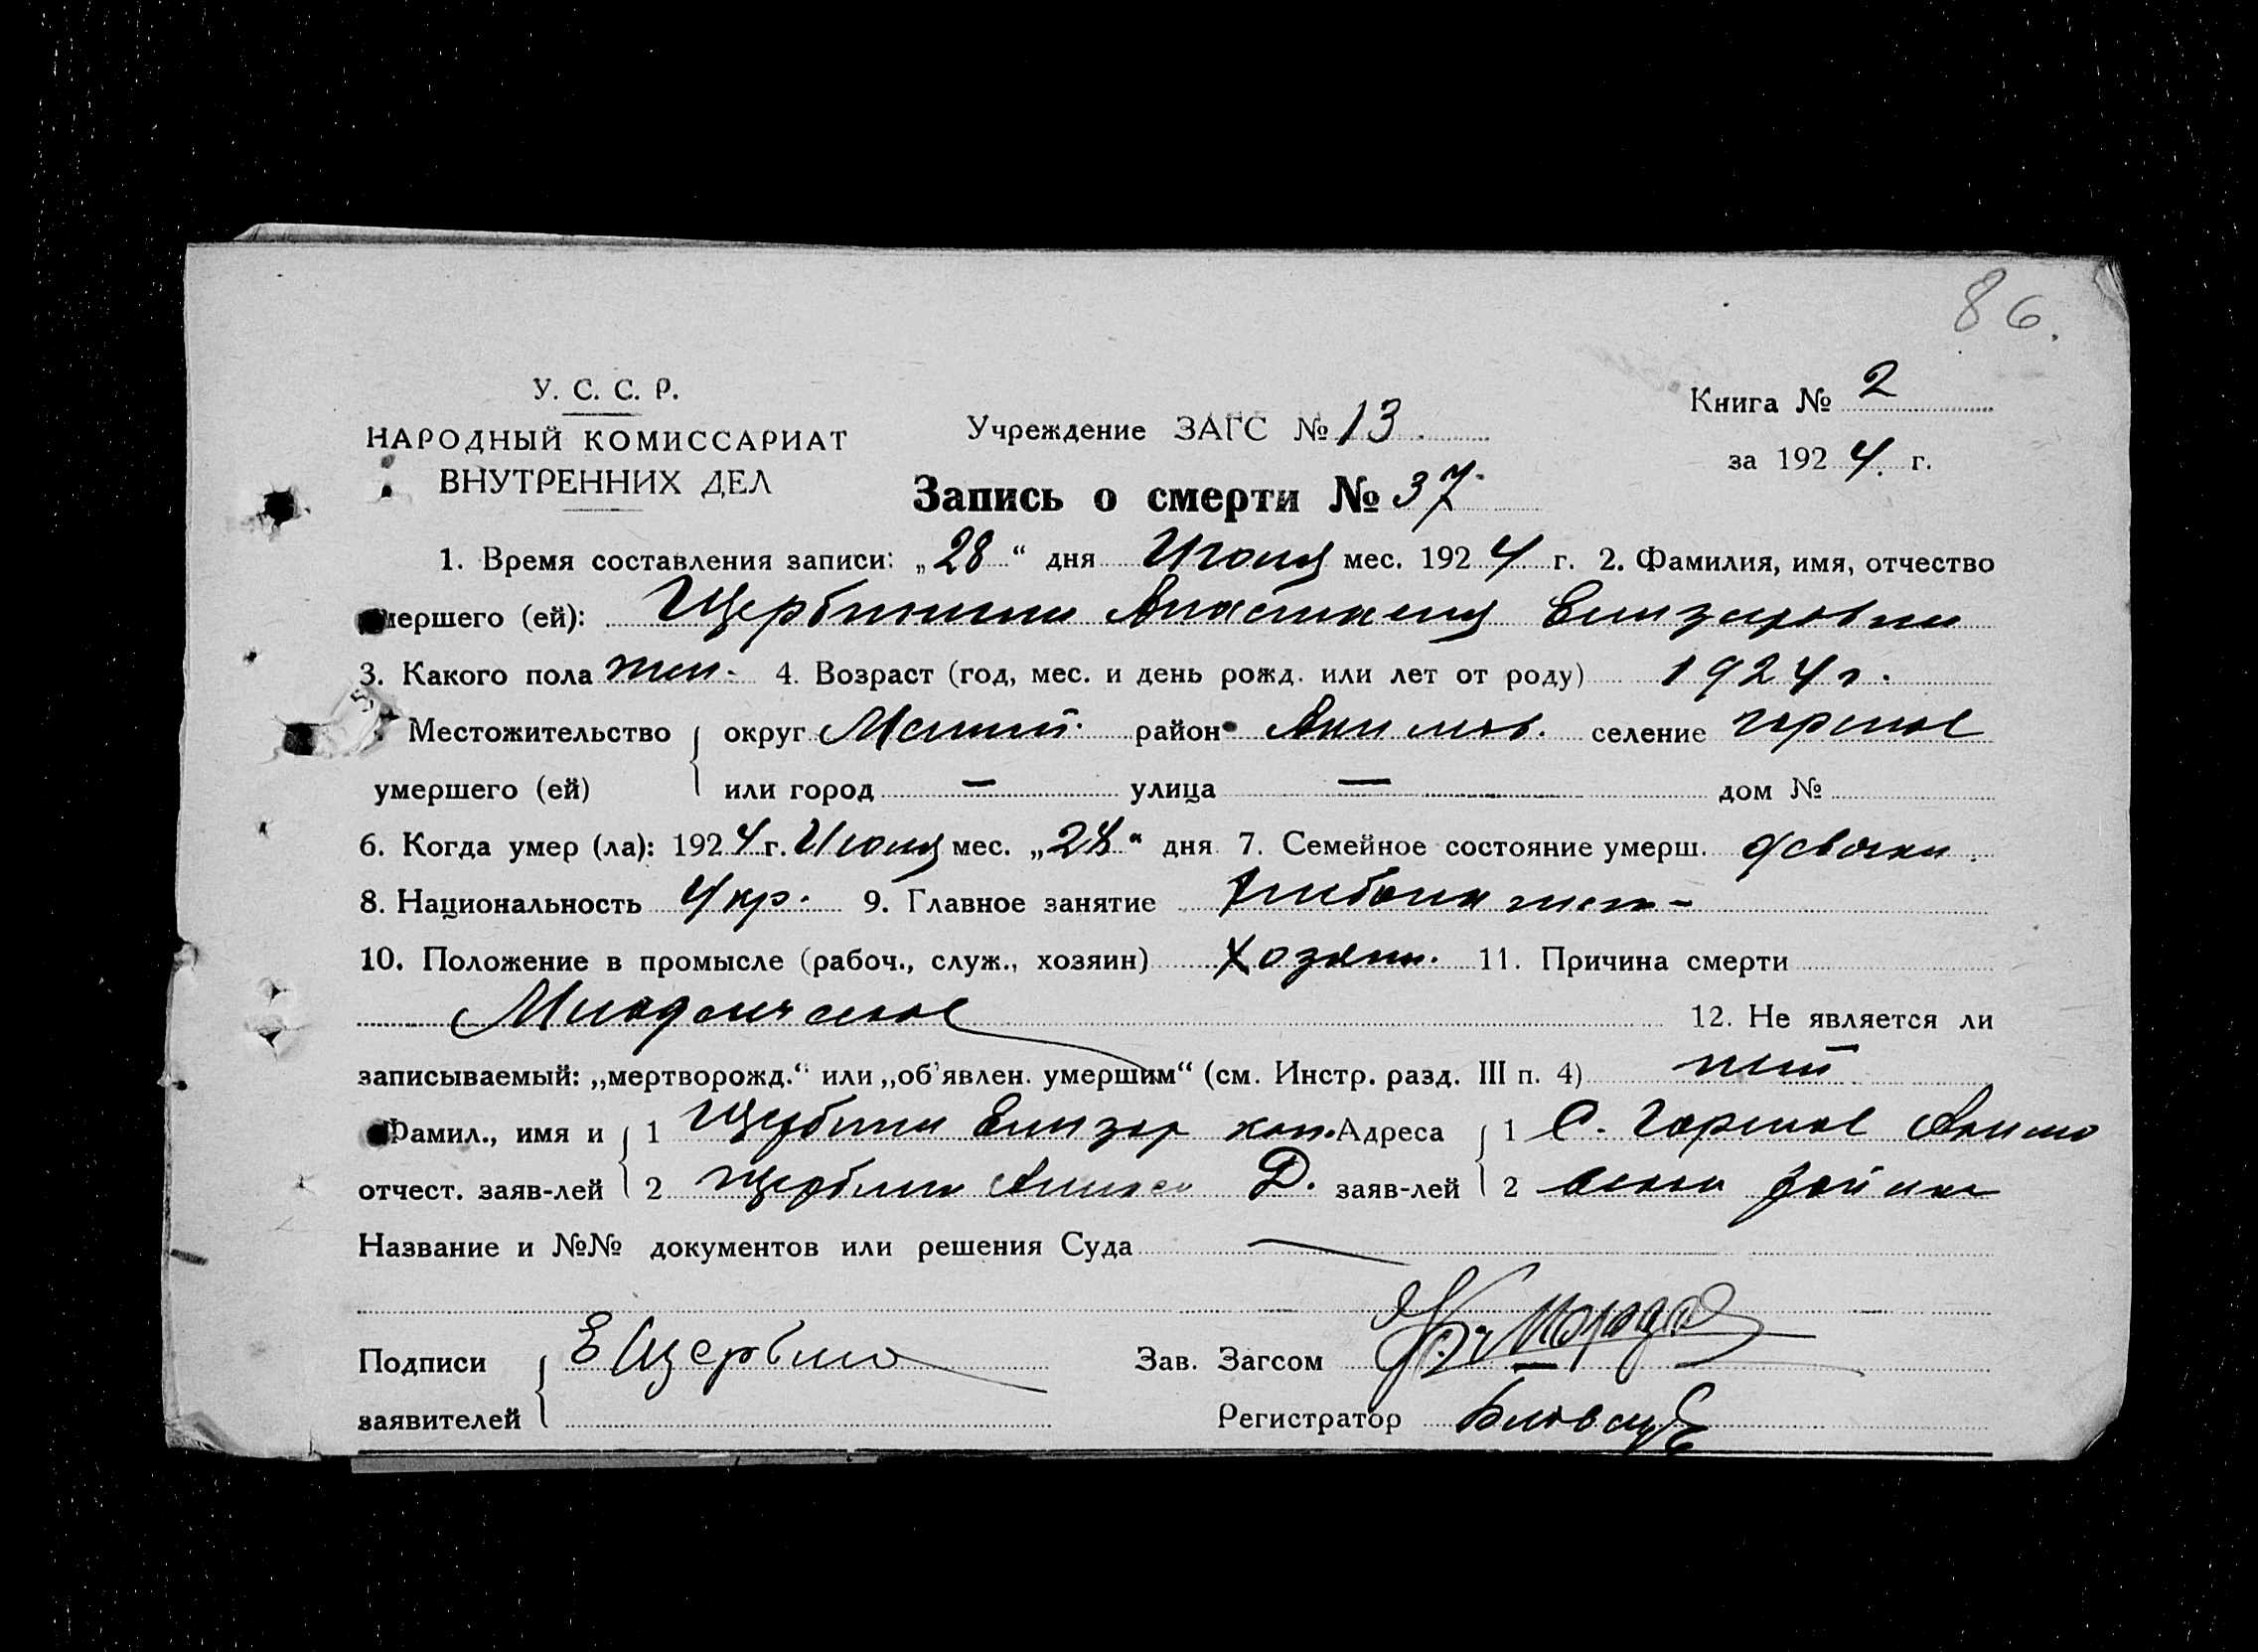 86.
У. С. С. Р.
НАРОДНЫЙ КОМИССАРИАТ
ВНУТРЕННИХ ДЕЛ
Учреждение ЗАГС № 13
Книга № 2
за 1924 г.
Запись о смерти № 37
1. Время составления записи: „28“ дня Июля мес. 1924 г. 2. Фамилия, имя, отчество
мершего (ей): Щербинина Анастасия Елизаровна
3. Какого пола жен. 4. Возраст (год, мес. и день рожд. или лет от роду) 1924 г.
5 Местожительство округ район Аким. селение Горелое
умершего (ей) или город — улица — дом №
6. Когда умер (ла): 1924 г. Июля мес. „28“ дня 7. Семейное состояние умерш. девочка
8. Национальность Укр. 9. Главное занятие
10. Положение в промысле (рабоч., служ., хозяин) Хозяин. 11. Причина смерти
Младенческое 12. Не является ли
записываемый: „мертворожд.“ или „об'явлен. умершим“ (см. Инстр. разд. III п. 4) нет
Фамил., имя и 1 Щербина Елизар Адреса 1 С. Горелое Акимо
отчест. заяв-лей 2 Щербина Д. заяв-лей 2 вского района
Название и №№ документов или решения Суда —
Подписи Е Щербина Зав. Загсом
заявителей Регистратор